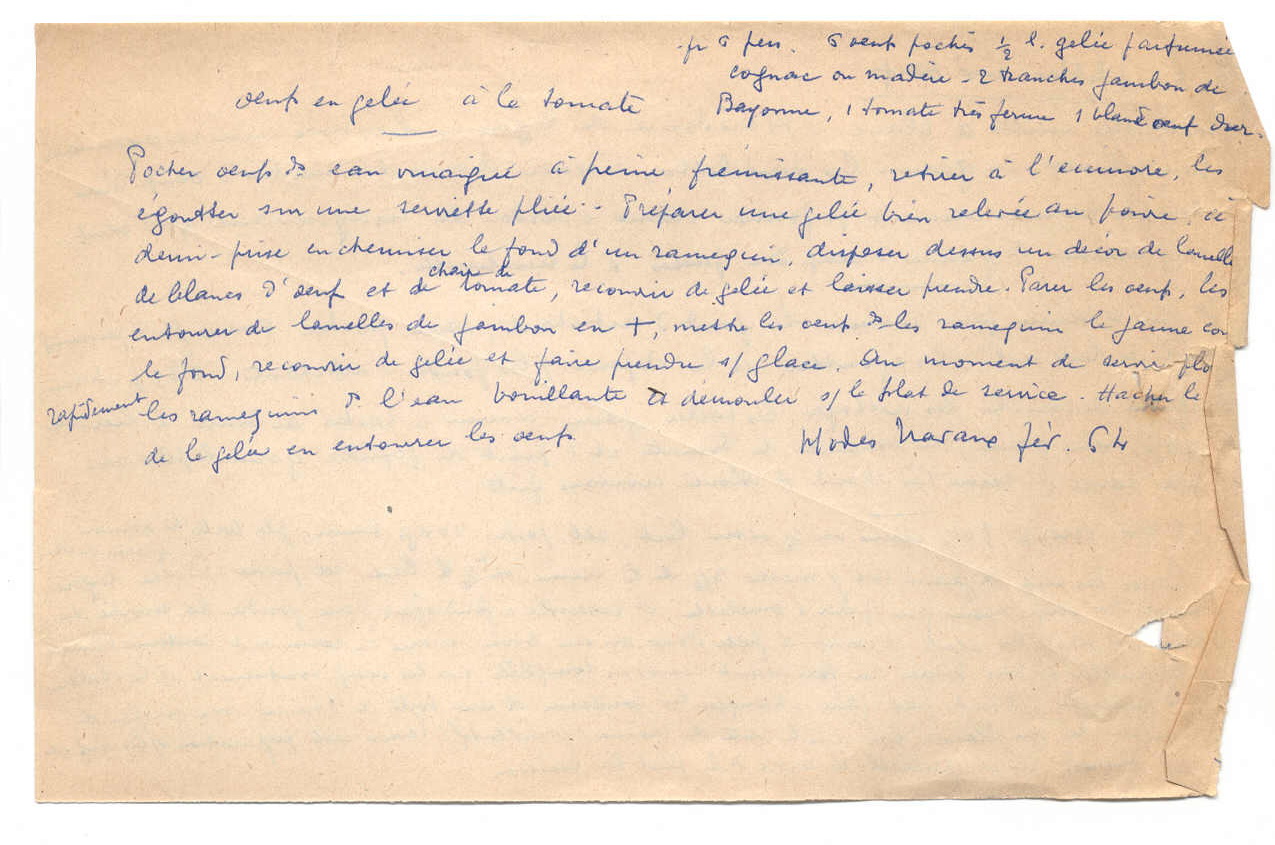 pr 6 pers. 6 oeufs pochés ½ l. gelée parfumée
cognac ou madère - 2 tranches jambon de
Bayonne, 1 tomate très ferme 1 blanc oeuf dur.
oeufs en gelée à la tomate
Pocher oeufs ds eau vinaigrée à peine frémissante, retirer à l'écumoire, les
égoutter sur une serviette pliée - Préparer une gelée bien relevée au poivre, à
demi-prise en chemiser le fond d'un ramequin, disposer dessus un décor de lamelle
de blancs d'oeuf et de chair de tomate, recouvrir de gelée et laisser prendre. Parer les oeufs, les
entourer de lamelles de jambon en +, mettre les oeufs ds les ramequins le jaune con
le fond, recouvrir de gelée et faire prendre s/ glace. Au moment de servir plo
rapidement les ramequins ds l'eau bouillante et démouler s/ le plat de service. Hacher le
de la gelée en entourer les oeufs
Modes Travaux fév. 64